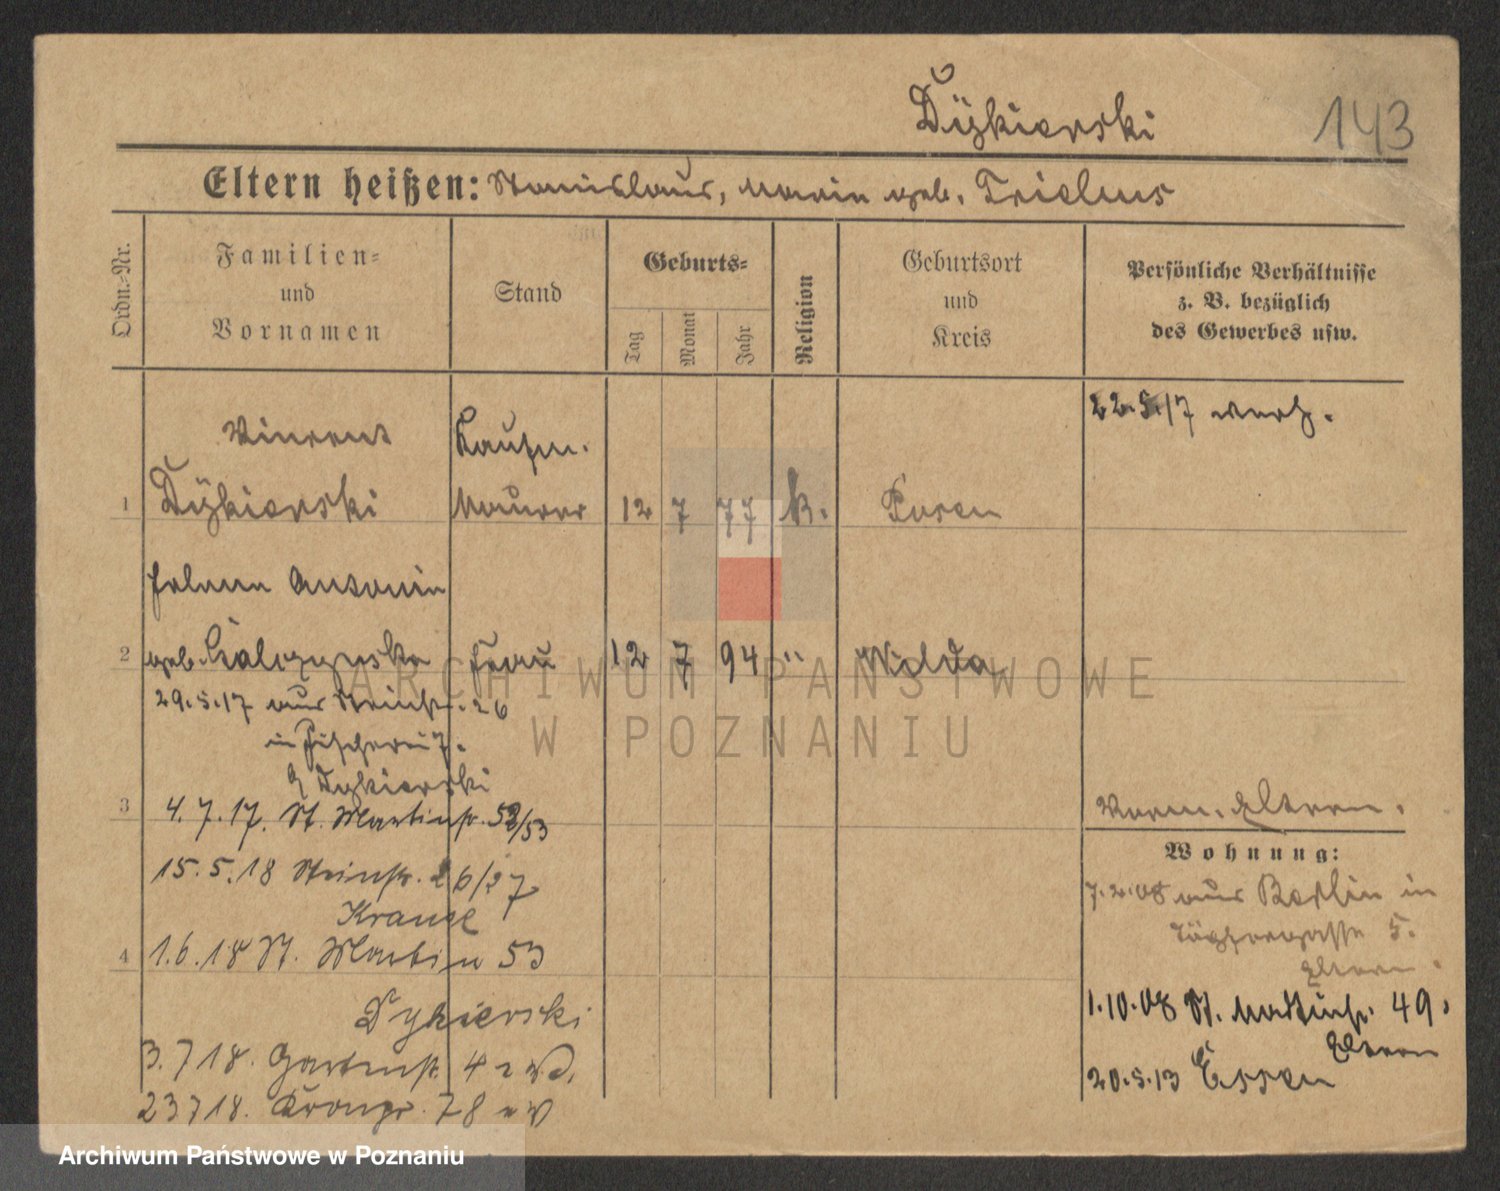 Dÿkierski
143
Eltern heißen: Stanislaus, Maria geb.
Ordn.-Nr.
Familien-
und
Vornamen
Stand
Geburts-
Tag
Monat
Jahr
Religion
Geburtsort
und
Kreis
Persönliche Verhältnisse
z. B. bezüglich
des Gewerbes usw.
22.5.17 verh.
Vincent
Kaufm.
1 Dÿkierski Maurer 12 7 77 k. Posen
Helene Antonin
2 geb. Frau 12 7 94 " Wilda
29.5.17 aus Steinstr. 26
in Fischerei 7.
b/ Dykierski
3 4.7.17. St. Martinstr. 52/53
Vorm. Eltern.
Wohnung:
15.5.18 Steinstr. 26/27
Krause
7.2.08 aus Berlin in
5.
Eltern.
4 1.6.18 St. Martin 53
Dykierski
1.10.08 St. Martinstr. 49.
Eltern
20.5.13 Essen
3.7 18. Gartenstr. 4
23 7 18. Kronpr. 78
ARCHIWUM PAŃSTWOWE
W POZNANIU
Archiwum Państwowe w Poznaniu